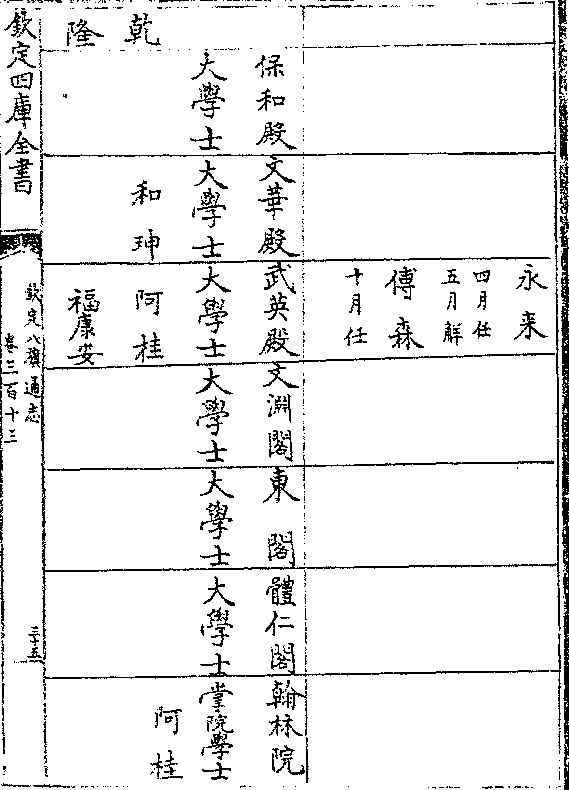 永来
四月任
五月解
傅森
十月任
保和殿
大學士
文華殿
大學士
和珅
武英殿
大學士
阿桂
福康安
文淵閣
大學士
東閣
大學士
體仁閣
大學士
翰林院
掌院學士
阿桂
乾隆
欽定四庫全書
欽定八旗通志
卷三百十三
三十五